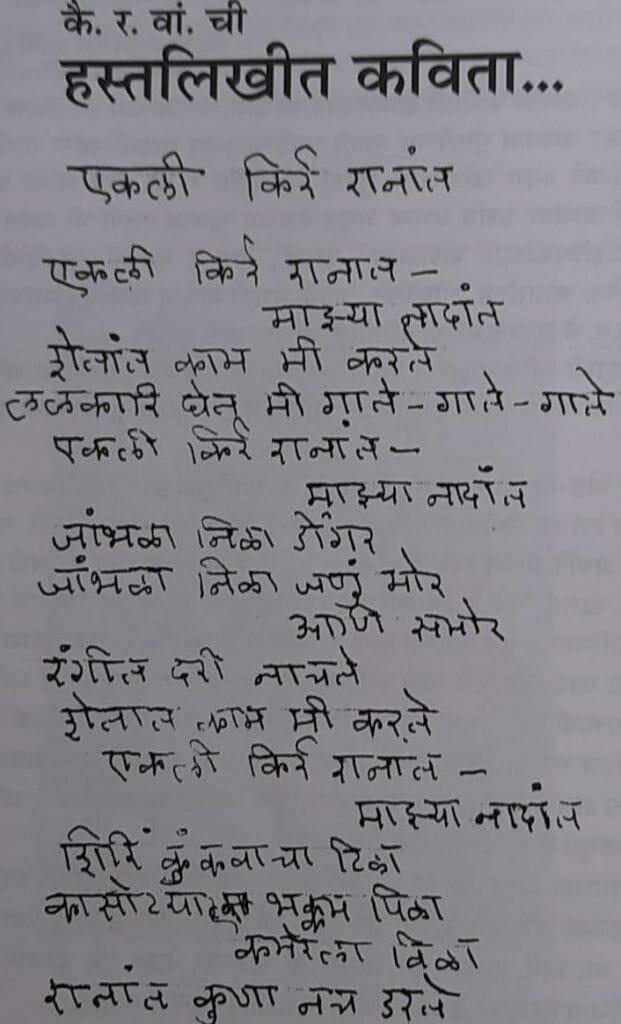 कै. र. वां. ची
हस्तलिखीत कविता...
एकली किर्र रानांत
एकली किर्र रानात –
माझ्या नादांत
शेतांत काम मी करते
ललकारि घेत मी गाते – गाते – गाते
एकली किर्र रानांत –
माझ्या नादांत
जांभळा निळा डोंगर
जांभळा निळा जणुं मोर
आणि समोर
रंगीत दरी नाचते
शेतात काम मी करते
एकली किर्र रानात –
माझ्या नादांत
शिरिं कुंकवाचा टिळा
कासोट्याला भक्कम पिळा
कमरेला विळा
रानांत कुणा नच डरते